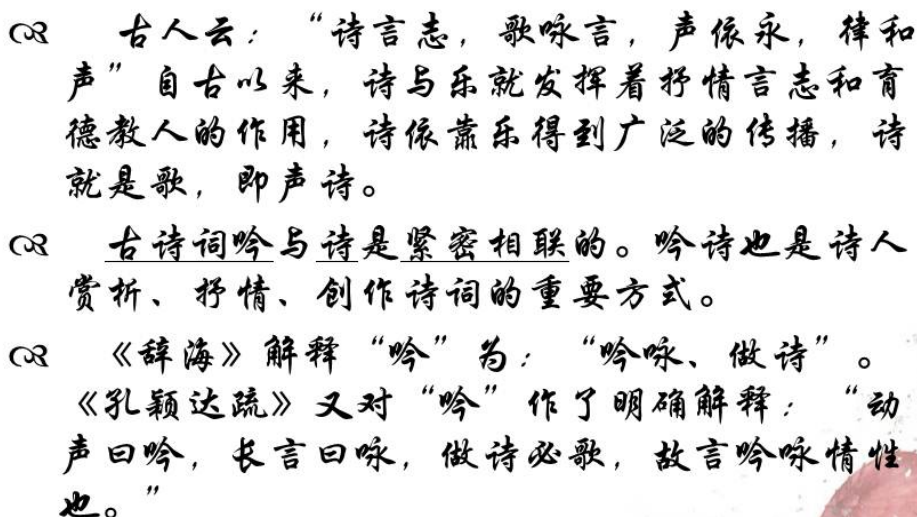 古人云：“诗言志，歌咏言，声依永，律和
声”自古以来，诗与乐就发挥着抒情言志和育
德教人的作用，诗依靠乐得到广泛的传播，诗
就是歌，即声诗。
古诗词吟与诗是紧密相联的。吟诗也是诗人
赏析、抒情、创作诗词的重要方式。
《辞海》解释“吟”为：“吟咏、做诗”。
《孔颖达疏》又对“吟”作了明确解释：“动
声曰吟，长言曰咏，做诗必歌，故言吟咏情性
也。”